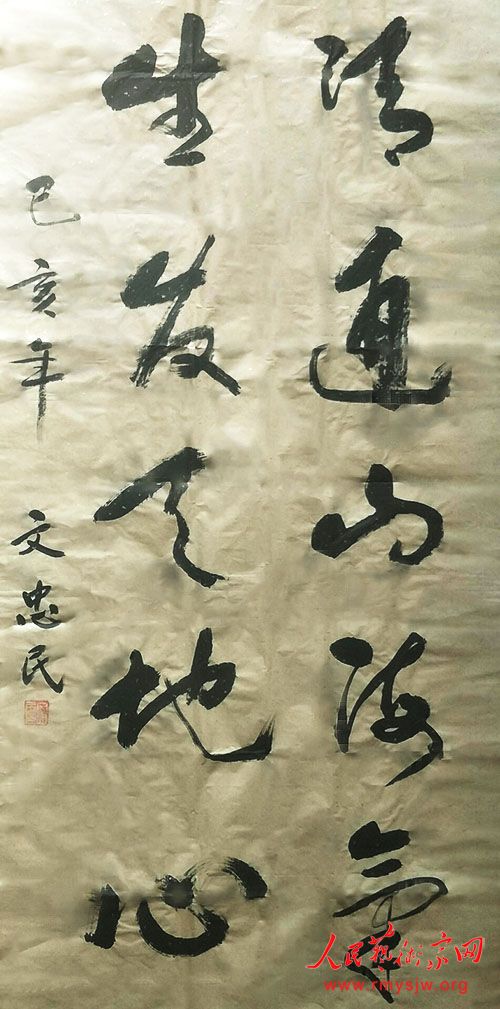 清通山海氣
生发天地心
己亥年 文忠民
人民藝術家网
www.rmysjw.org